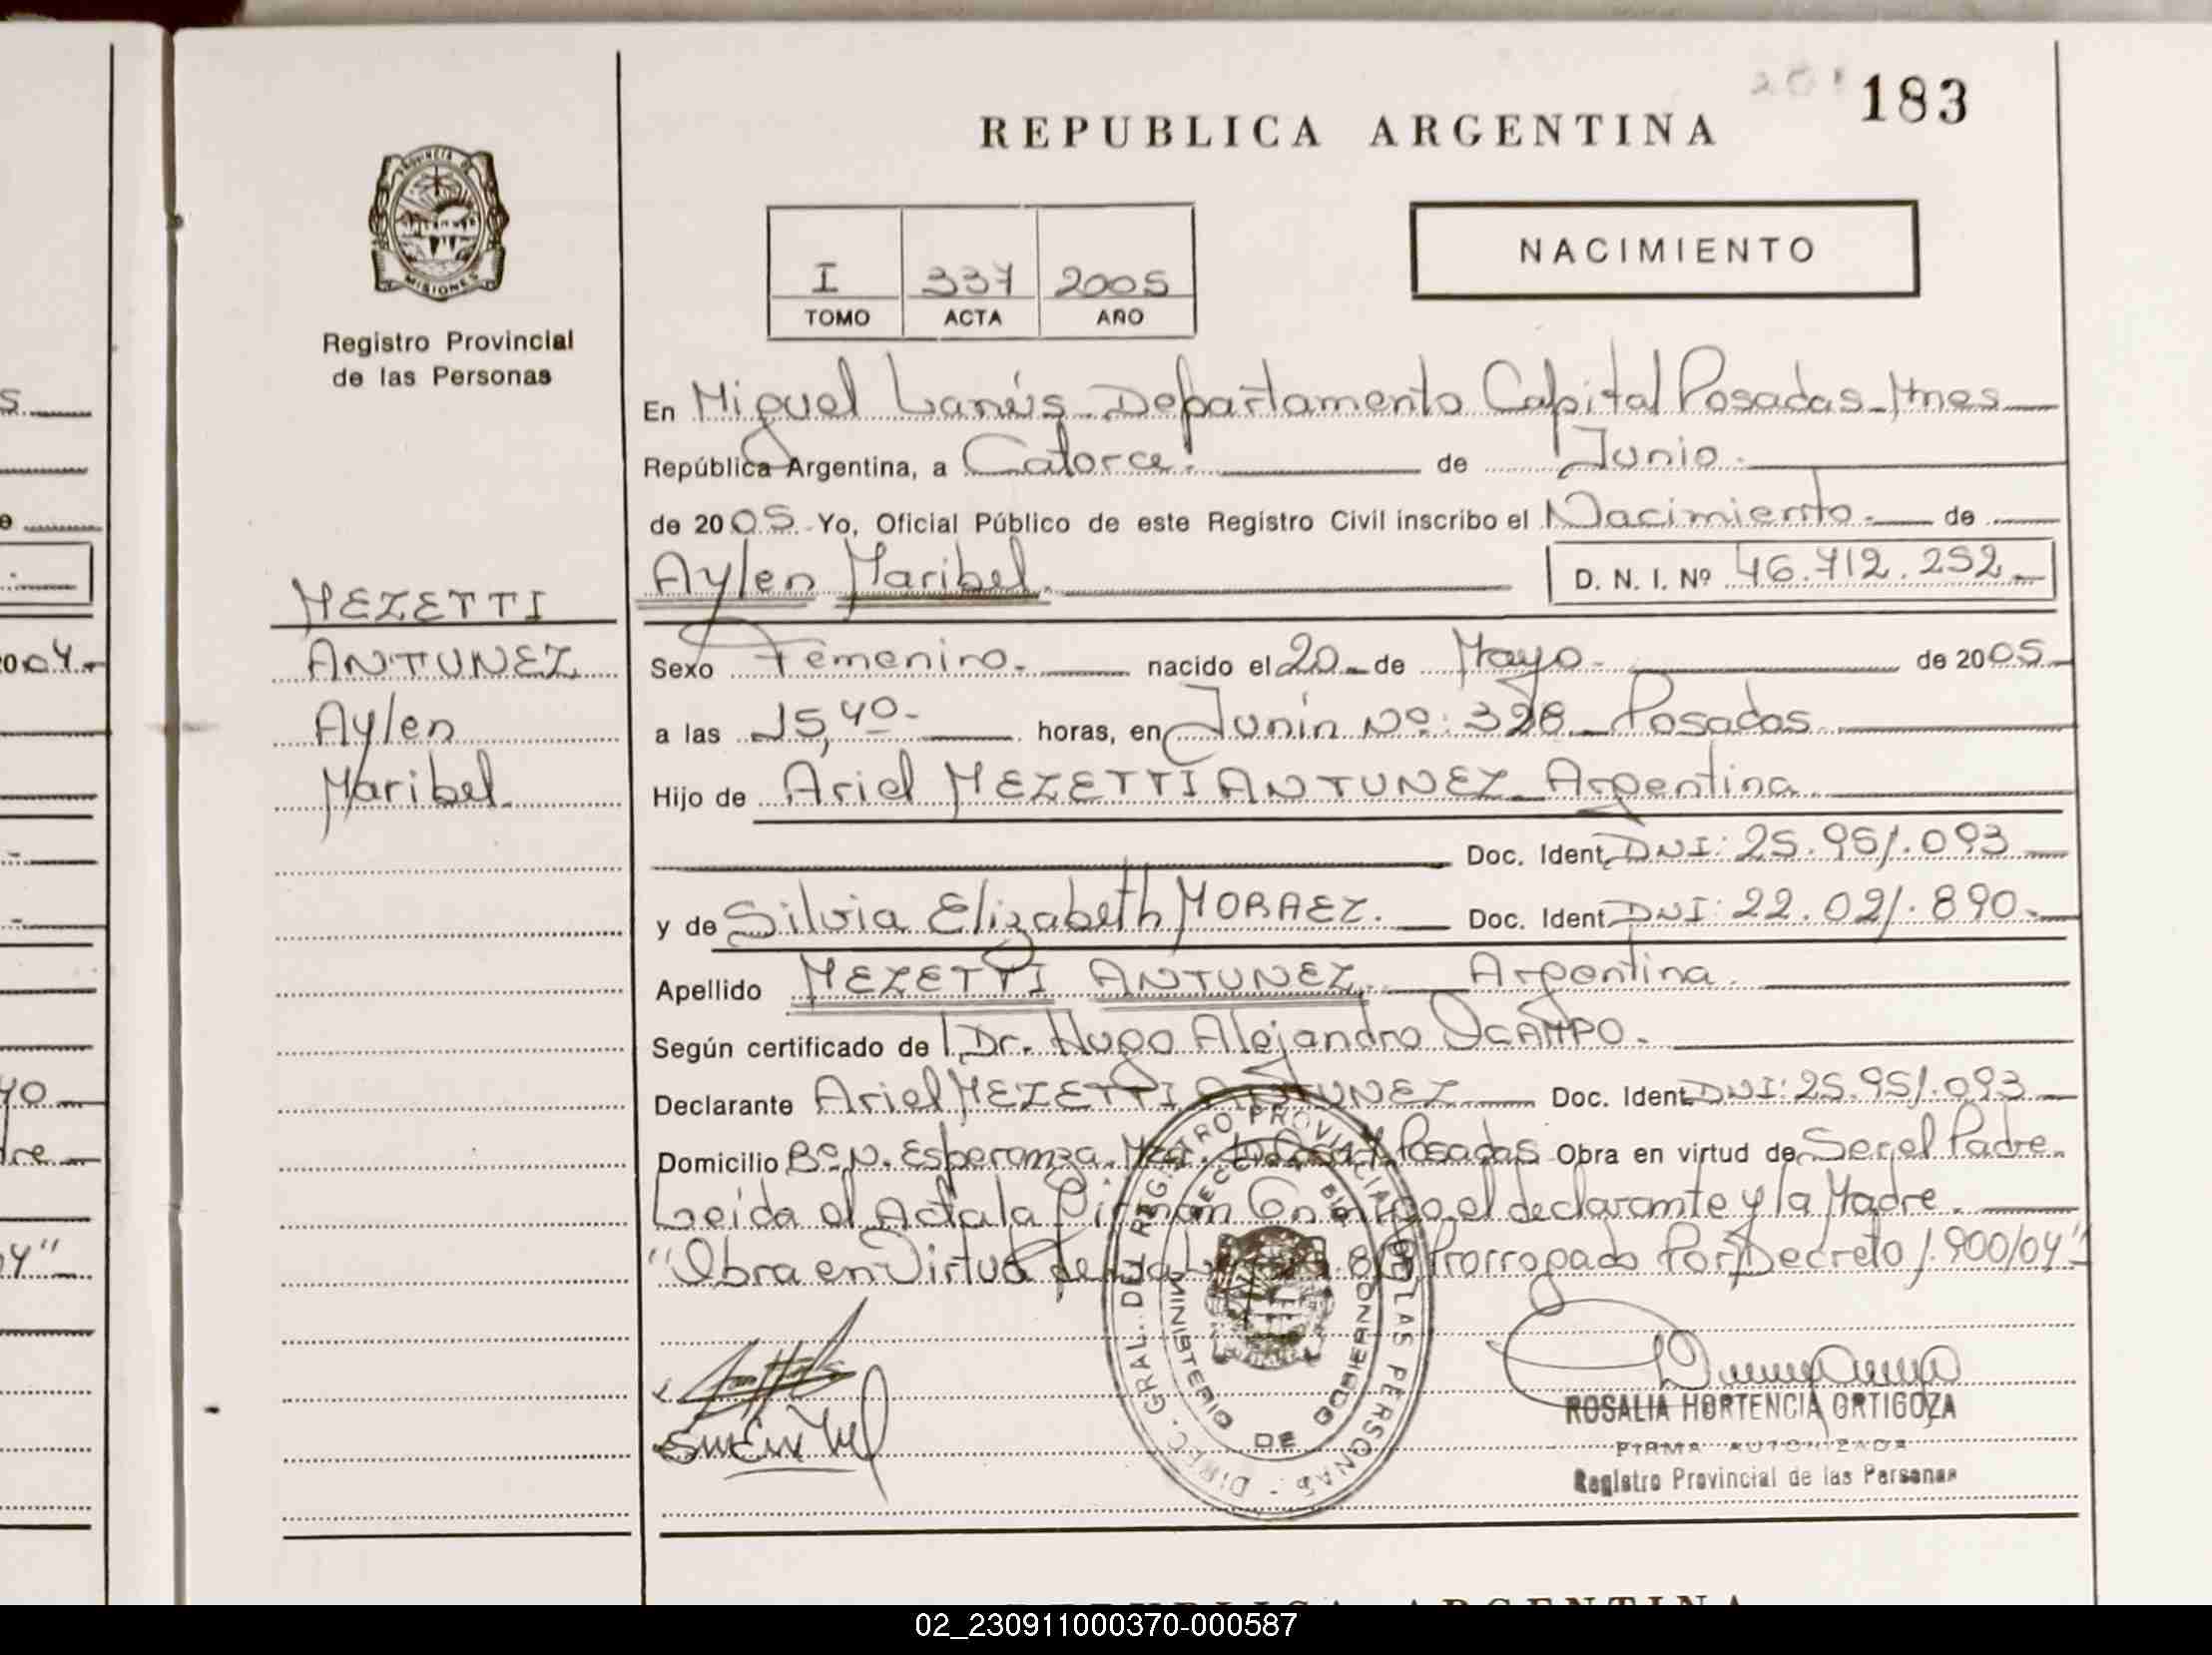 183
REPUBLICA ARGENTINA
PROVINCIA DE
MISIONES
Registro Provincial
de las Personas
NACIMIENTO
I 337 2005
TOMO ACTA AÑO
En Miguel Lanús Departamento Capital Posadas Mnes
República Argentina, a Catorce. de Junio.
de 2005. Yo, Oficial Público de este Registro Civil inscribo el Nacimiento. de
Aylen Maribel. D. N. I. Nº 46.712.252
MEZETTI
ANTUNEZ
Aylen
Maribel.
Sexo Femenino. nacido el 20 de Mayo. de 2005
a las 15,40 horas, en Junín Nº: 328 Posadas.
Hijo de Ariel MEZETTI ANTUNEZ Argentina.
Doc. Ident. DNI: 25.951.093
y de Silvia Elizabeth MORAEZ. Doc. Ident. DNI: 22.021.890.
Apellido MEZETTI ANTUNEZ. Argentina.
Según certificado de Dr. Hugo Alejandro OCAMPO.
Declarante Ariel MEZETTI ANTUNEZ Doc. Ident. DNI: 25.951.093
Domicilio Bº N. Esperanza. Posadas Obra en virtud de Ser el Padre.
Leída el Acta la Firman Conmigo el declarante y la Madre.
"Obra en Virtud de Prorrogado Por Decreto 1.900/04"
DIREC. GRAL. DEL REGISTRO PROVINCIAL DE LAS PERSONAS
MINISTERIO DE GOBIERNO
ROSALIA HORTENCIA ORTIGOZA
FIRMA AUTORIZADA
Registro Provincial de las Personas
REPUBLICA ARGENTINA
02_230911000370-000587